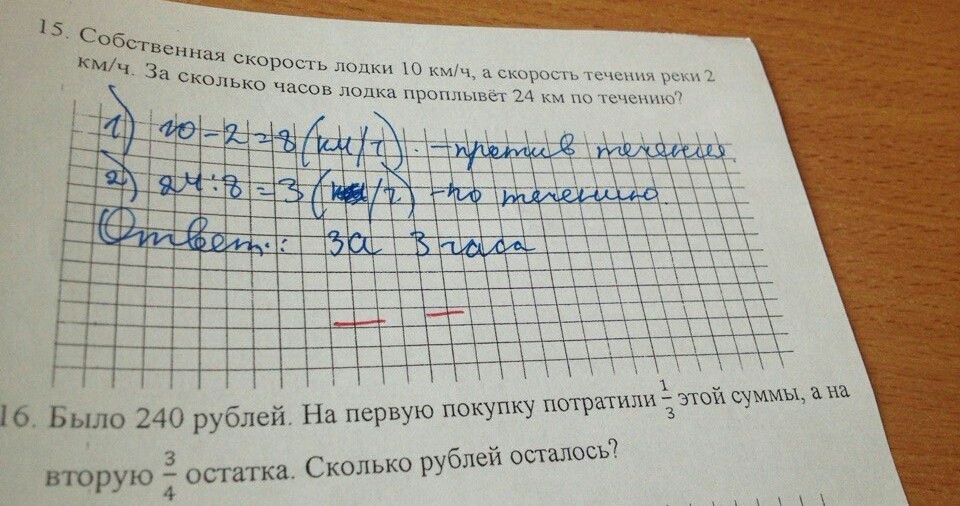 15. Собственная скорость лодки 10 км/ч, а скорость течения реки 2
км/ч. За сколько часов лодка проплывёт 24 км по течению?
1) 10 - 2 = 8 (км/ч). - против течения.
2) 24 : 8 = 3 (/ч) - по течению.
Ответ.: за 3 часа
16. Было 240 рублей. На первую покупку потратили 1/3 этой суммы, а на
вторую 3/4 остатка. Сколько рублей осталось?